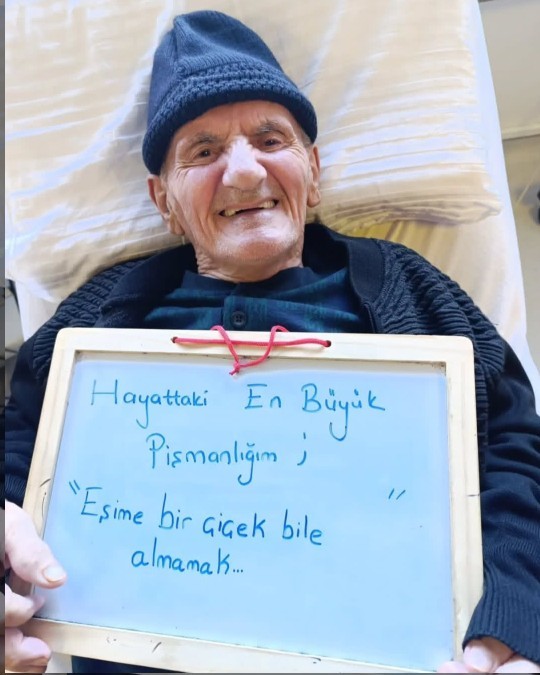 Hayattaki En Büyük
Pişmanlığım ;
"Eşime bir çiçek bile "
almamak...